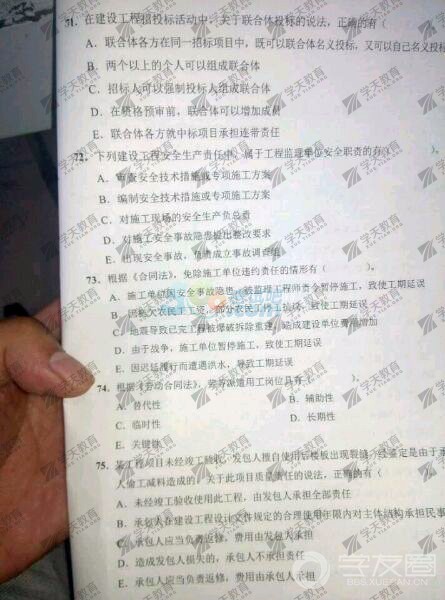 71. 在建设工程招投标活动中，关于联合体投标的说法，正确的有（
A. 联合体各方在同一招标项目中，既可以联合体名义投标，又可以自己名义投标
B. 两个以上的个人可以组成联合体
C. 招标人可以强制投标人组成联合体
D. 在资格预审前，联合体可以增加成员
E. 联合体各方就中标项目承担连带责任
72. 下列建设工程安全生产责任中，属于工程监理单位安全职责的有（ ）。
A. 审查安全技术措施或专项施工方案
B. 编制安全技术措施或专项施工方案
C. 对施工现场的安全生产负总责
D. 对施工安全事故隐患提出整改要求
E. 出现安全事故，负责成立事故调查组
73. 根据《合同法》，免除施工单位违约责任的情形有（ ）。
A. 施工单位因安全事故隐患，被监理工程师责令暂停施工，致使工期延误
B. 因拖欠农民工工资，部分农民工停工抗议，致使工期延误
C. 地震导致已完工程被爆破拆除重建，造成建设单位费用增加
D. 由于战争，施工单位暂停施工，致使工期延误
E. 因迟延履行而遭遇洪水，导致工期延误
74. 根据《劳动合同法》，劳务派遣用工岗位具有（ ）。
A. 替代性
B. 辅助性
C. 临时性
D. 长期性
E. 关键性
75. 某工程项目未经竣工验收，发包人擅自使用后楼板出现裂缝，经鉴定是由于承
人偷工减料造成的，关于此项目质量责任的说法，正确的有（
A. 未经竣工验收使用此工程，由发包人承担全部责任
B. 承包人在建设工程设计文件规定的合理使用年限内对主体结构承担民事
C. 承包人应当负责返修，费用由发包人承担
D. 造成发包人损失的，承包人不承担责任
E. 承包人应当负责返修，费用由承包人承担
学天教育
学友圈
BBS.XUETIAN.CN